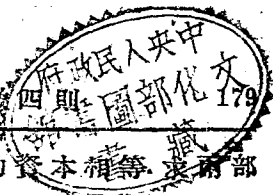 中央人民政府
文化部圖書
藏
四則 179
資本相等.求兩部